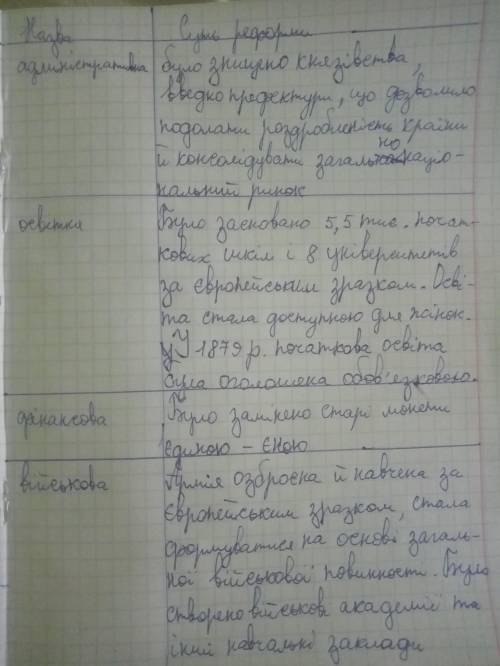 Назва Суть реформи
адміністративна було знищено князівства,
введно префектури, що дозволило
подолати роздробленість країни
й консолідувати загальнонаціо-
нальний ринок
освітня Було засновано 5,5 тис. почат-
кових шкіл і 8 університетів
за європейським зразком. Осві-
та стала доступною для жінок.
У 1879 р. початкова освіта
була оголошена обов'язковою.
фінансова Було замінено старі монети
єдиною - єною
військова Армія озброєна й навчена за
європейським зразком, стала
формуватися на основі загаль-
ної військової повинності. Було
створено військові академії та
інші навчальні заклади